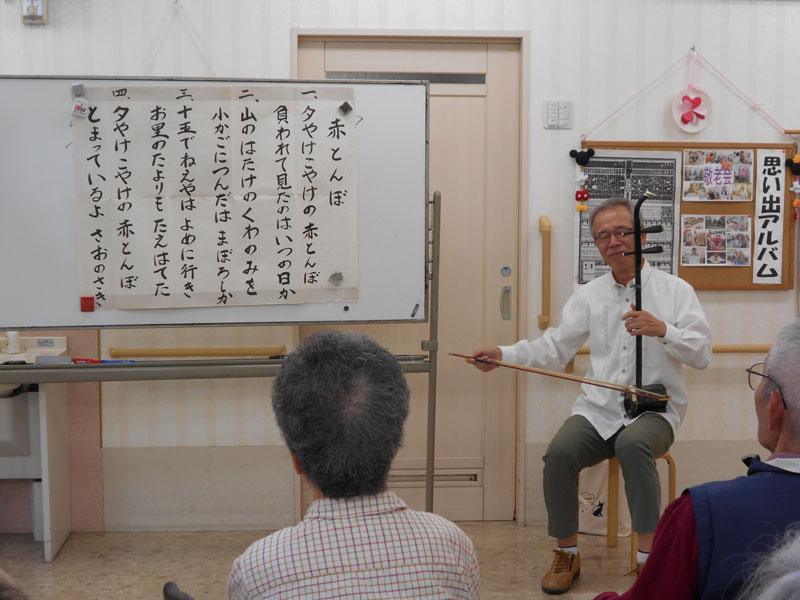 赤とんぼ
一、夕やけこやけの赤とんぼ
負われて見たのはいつの日か
二、山のはたけのくわのみを
小かごにつんだは まぼろしか
三、十五でねえやは よめに行き
お里のたよりも たえはてた
四、夕やけこやけの 赤とんぼ
とまっているよ さおのさき
敬老会
思い出アルバム